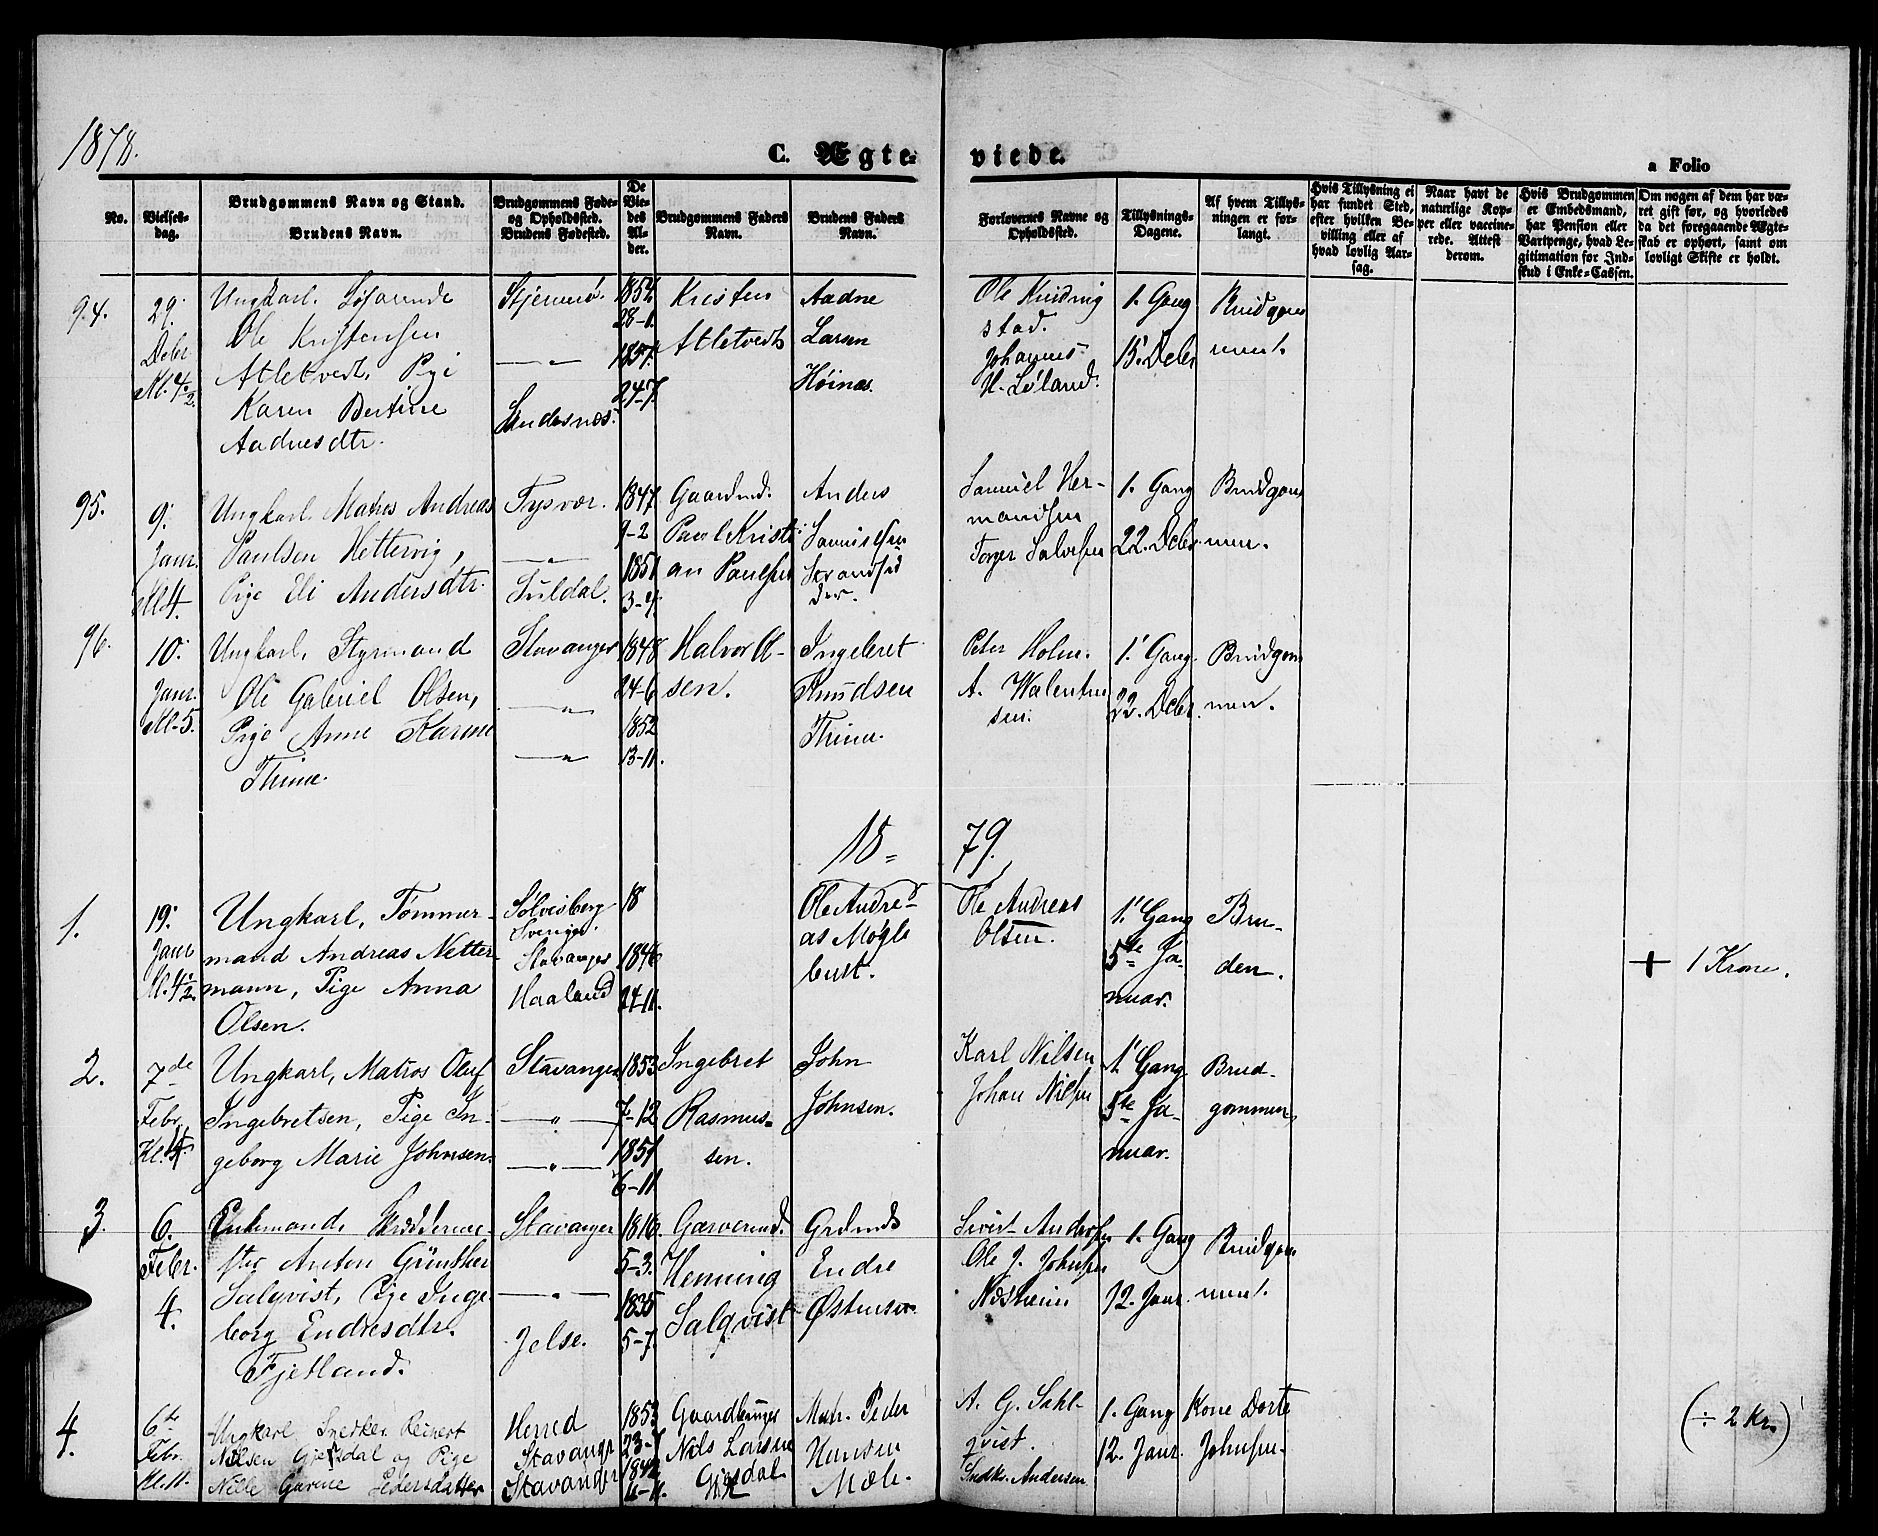 1878.
C. Ægte- viede.
a Folio
No.
Vielses-dag.
Brudgommens Navn og Stand.
Brudens Navn.
Brudgommens Føde- og Opholdssted.
Brudens Fødested.
De Viedes Alder.
Brudgommens Faders Navn.
Brudens Faders Navn.
Forlovernes Navne og Opholdssted.
Tillysnings-Dagene.
Af hvem Tillysningen er forlangt.
Hvis Tillysning ei har fundet Sted, efter hvilken Bevilling eller af hvad lovlig Aarsag.
Naar havt de naturlige Kopper eller vaccinerede. Attest derom.
Hvis Brudgommen er Embedsmand, har Pension eller Vartpenge, hvad Legitimation for Indskud i Enke-Cassen.
Om nogen af dem har været gift før, og hvorledes da det foregaaende Ægteskab er ophørt, samt om lovligt Skifte er holdt.
94.
29.
Debr
Kl. 4½.
Ungkarl.
Ole Kristensen
Atletvedt, Pige
Karen Bertine
Aadnesdtr.
Stjernerø.
—„—
28-1.
1857.
24-7.
Kristen
Atletvedt
Aadne
Larsen
Høinæs.
Ole
stad.
Johannes
H. Løland.
1. Gang
15. Debr
Brudgom
ment.
95.
9.
Janr.
Kl 4.
Ungkarl. Matros Andreas
Paulsen Hettervig,
Pige Eli Andersdtr.
Tysvær.
—„—
Suldal.
1847.
9-2
1851
Gaardmd.
Paul Kristi
an Paulsen
Anders
1. Gang
22. Debr.
Samuel Her-
mandsen
Torger Salvesen
Brudgom
men.
96.
10.
Janr.
Kl. 5.
Ungkarl, Styrmand
Ole Gabriel Olsen,
Pige Anne Karine
Thime.
Stavanger
—„—
—„—
1848
24-6
1852
13-11.
Halvor Ol-
sen.
Ingebret
Knudsen
Thime.
Peter Holm.
A. Walentin
sen.
1. Gang.
22. Debr.
Brudgom
men.
18= 79.
1.
19.
Janr
Kl. 4½.
Ungkarl, Tømmer-
mand Andreas Netter-
mann, Pige Anna
Olsen.
Sølvesberg
Sverige.
Stavanger
Haaland
18
1846
24-11.
Ole Andre-
as Møgle
bust.
Ole Andreas
Olsen.
1. Gang
5te Ja-
nuar.
Bru-
den.
+ 1 Krone.
2.
7de
Febr.
Kl. 4
Ungkarl, Matros Oluf
Ingebretsen, Pige In-
geborg Marie Johnsen.
Stavanger
—„—
—„—
1853
7-12
1851
6-11
Ingebret
Rasmus-
sen.
John
Johnsen.
Karl Nilsen
Johan Nilsen
1. Gang
5te Ja-
nuar.
Brud-
gommen.
3.
6.
Febr.
4.
Enkemand, Skrædderme-
ster Anton Günther
Salqvist, Pige Inge
borg Endresdtr.
Fjetland.
Stavanger
—„—
Jelse.
1816.
5-3.
1835
5-7.
Garvermd.
Henning
Salqvist
Grdmd.
Endre
Østensen
Sivert Andersen
Ole J. Johnsen
Næsheim
1. Gang
12. Janr.
Brudgom
ment.
4.
6te
Febr.
Kl. 11.
Ungkarl, Snedker Reinert
Nilsen Gjesdal og Pige
Nille Gurine Pedersdatter
Herred
Stavanger
Stavanger
1853
23-7
Gaardbruger
Nils Larsen
Gjesdal
Matr. Peder
Hansen
Mæle.
A. G. Sahl-
qvist.
Snedkr. Andersen
1. Gang
12. Janr.
Kone Dorte
Johnsen.
(÷ 2 Kr.)